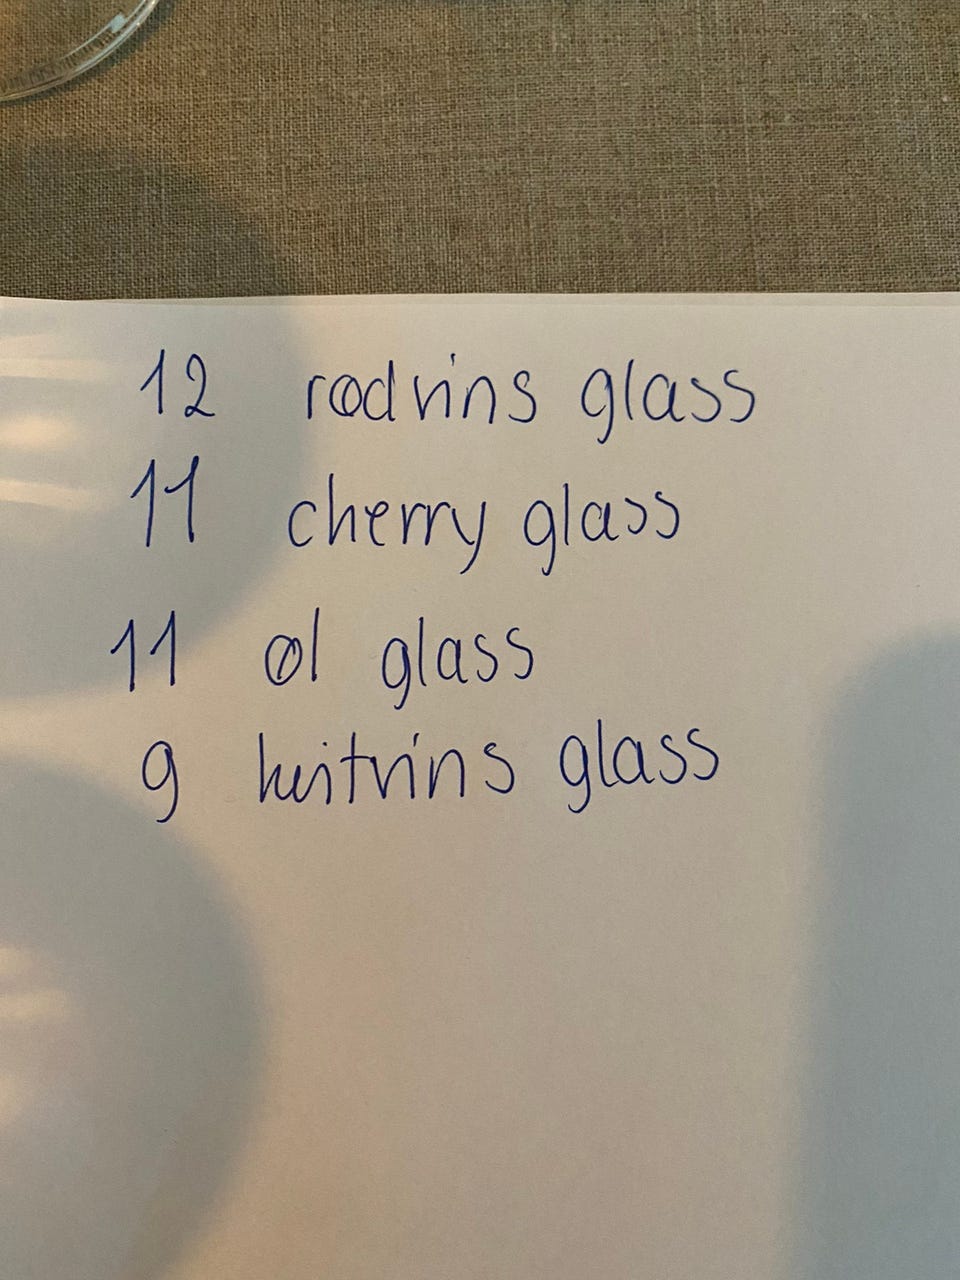 12 rødvins glass
11 cherry glass
11 øl glass
9 hvitvins glass